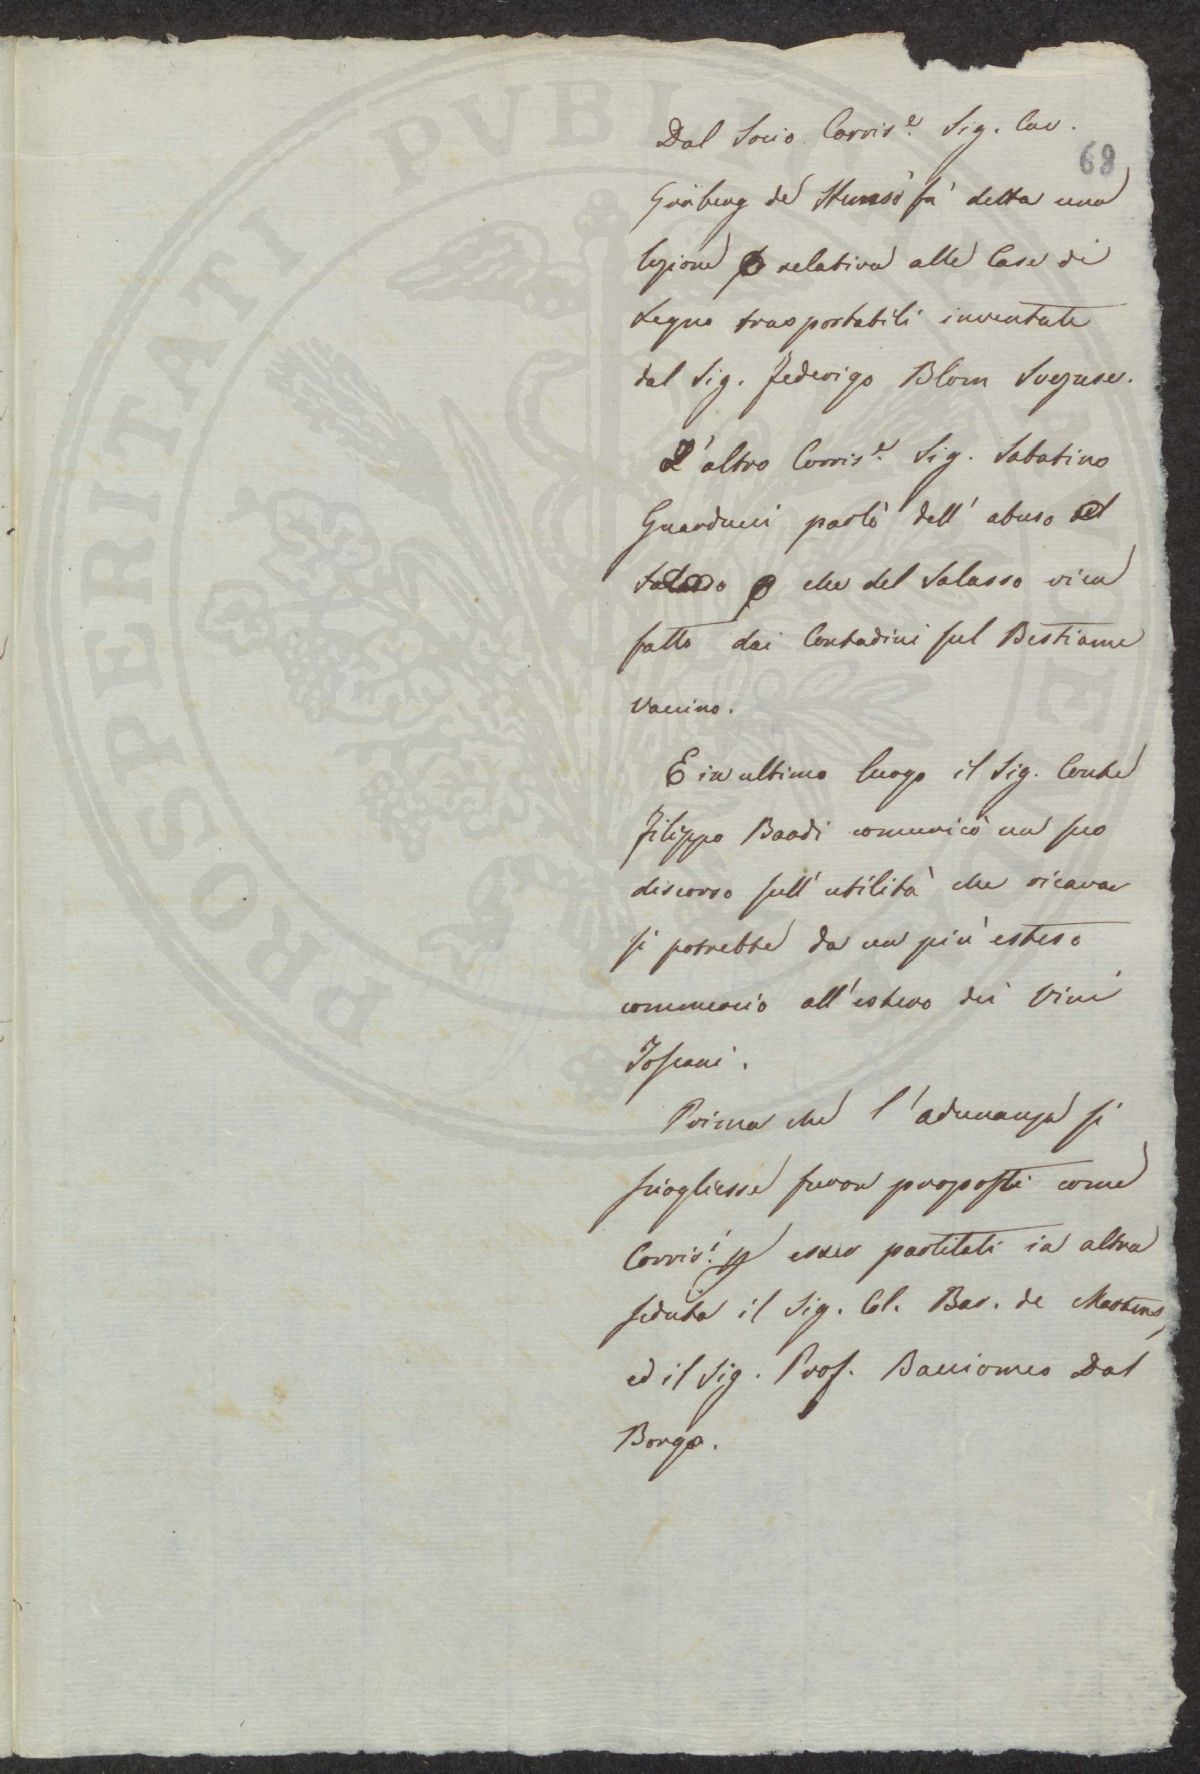 Dal Socio Corris.e Sig. Cav.
68
Gråberg de Hemsö fù detta una
lezione relativa alle Case di
Legno trasportabili inventate
dal Sig. Federigo Blom Svezese.
L'altro Corris.e Sig. Sabatino
Guarducci parlò dell' abuso
che del Salasso vien
fatto dai Contadini sul Bestiame
vaccino.
E in ultimo luogo il Sig. Conte
Filippo Bardi comunicò un suo
discorso sull' utilità che ricavar
si potrebbe da un più esteso
commercio all'estero dei Vini
Toscani.
Prima che l'adunanza si
sciogliesse furon proposti come
Corris.i p esser partitati in altra
seduta il Sig. Col. Bar. de Martens,
ed il Sig. Prof. Bacciomeo Dal
Borgo.
PROSPERITATI PVBLICAE AVGENDAE